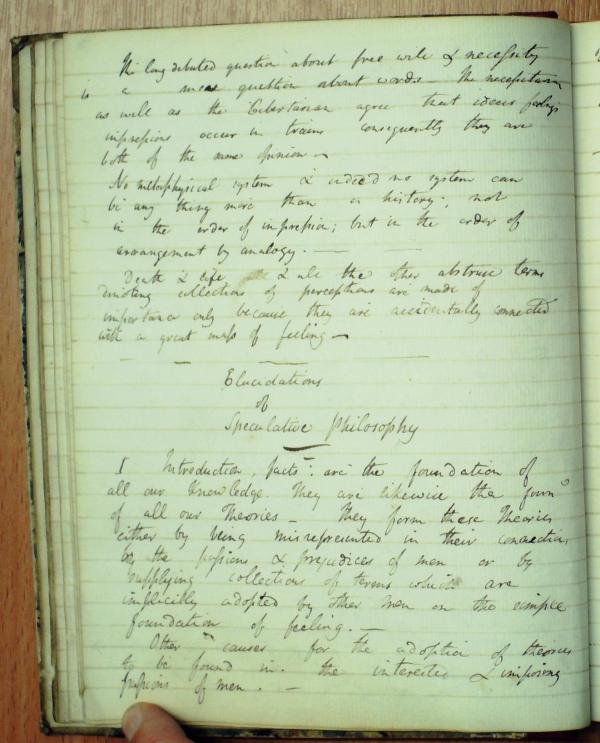 The long debated question about free will & necessity
is a mere question about words. The necessitarian
as well as the Libertarian agree that ideas feelings
impressions occur in trains consequently they are
both of the same opinion —
No metaphysical system & indeed no system can
be any thing more than a history; not
in the order of impression; but in the order of
arrangement by analogy. —
Death & life & all the other abstruse terms
denoting collections of perceptions are made of
importance only because they are accidentally connected
with a great mass of feeling —
Elucidations
of
Speculative Philosophy
I Introduction, facts are the foundation of
all our knowledge. They are likewise the
of all our Theories — They form these Theories
either by being misrepresented in their connection
by the passions & prejudices of men or by
supplying collections of terms which are
implicitly adopted by other men on the simple
foundation of feeling. —
Other causes for the adoption of theories
to be found in the interested & imposing
passions of men. —